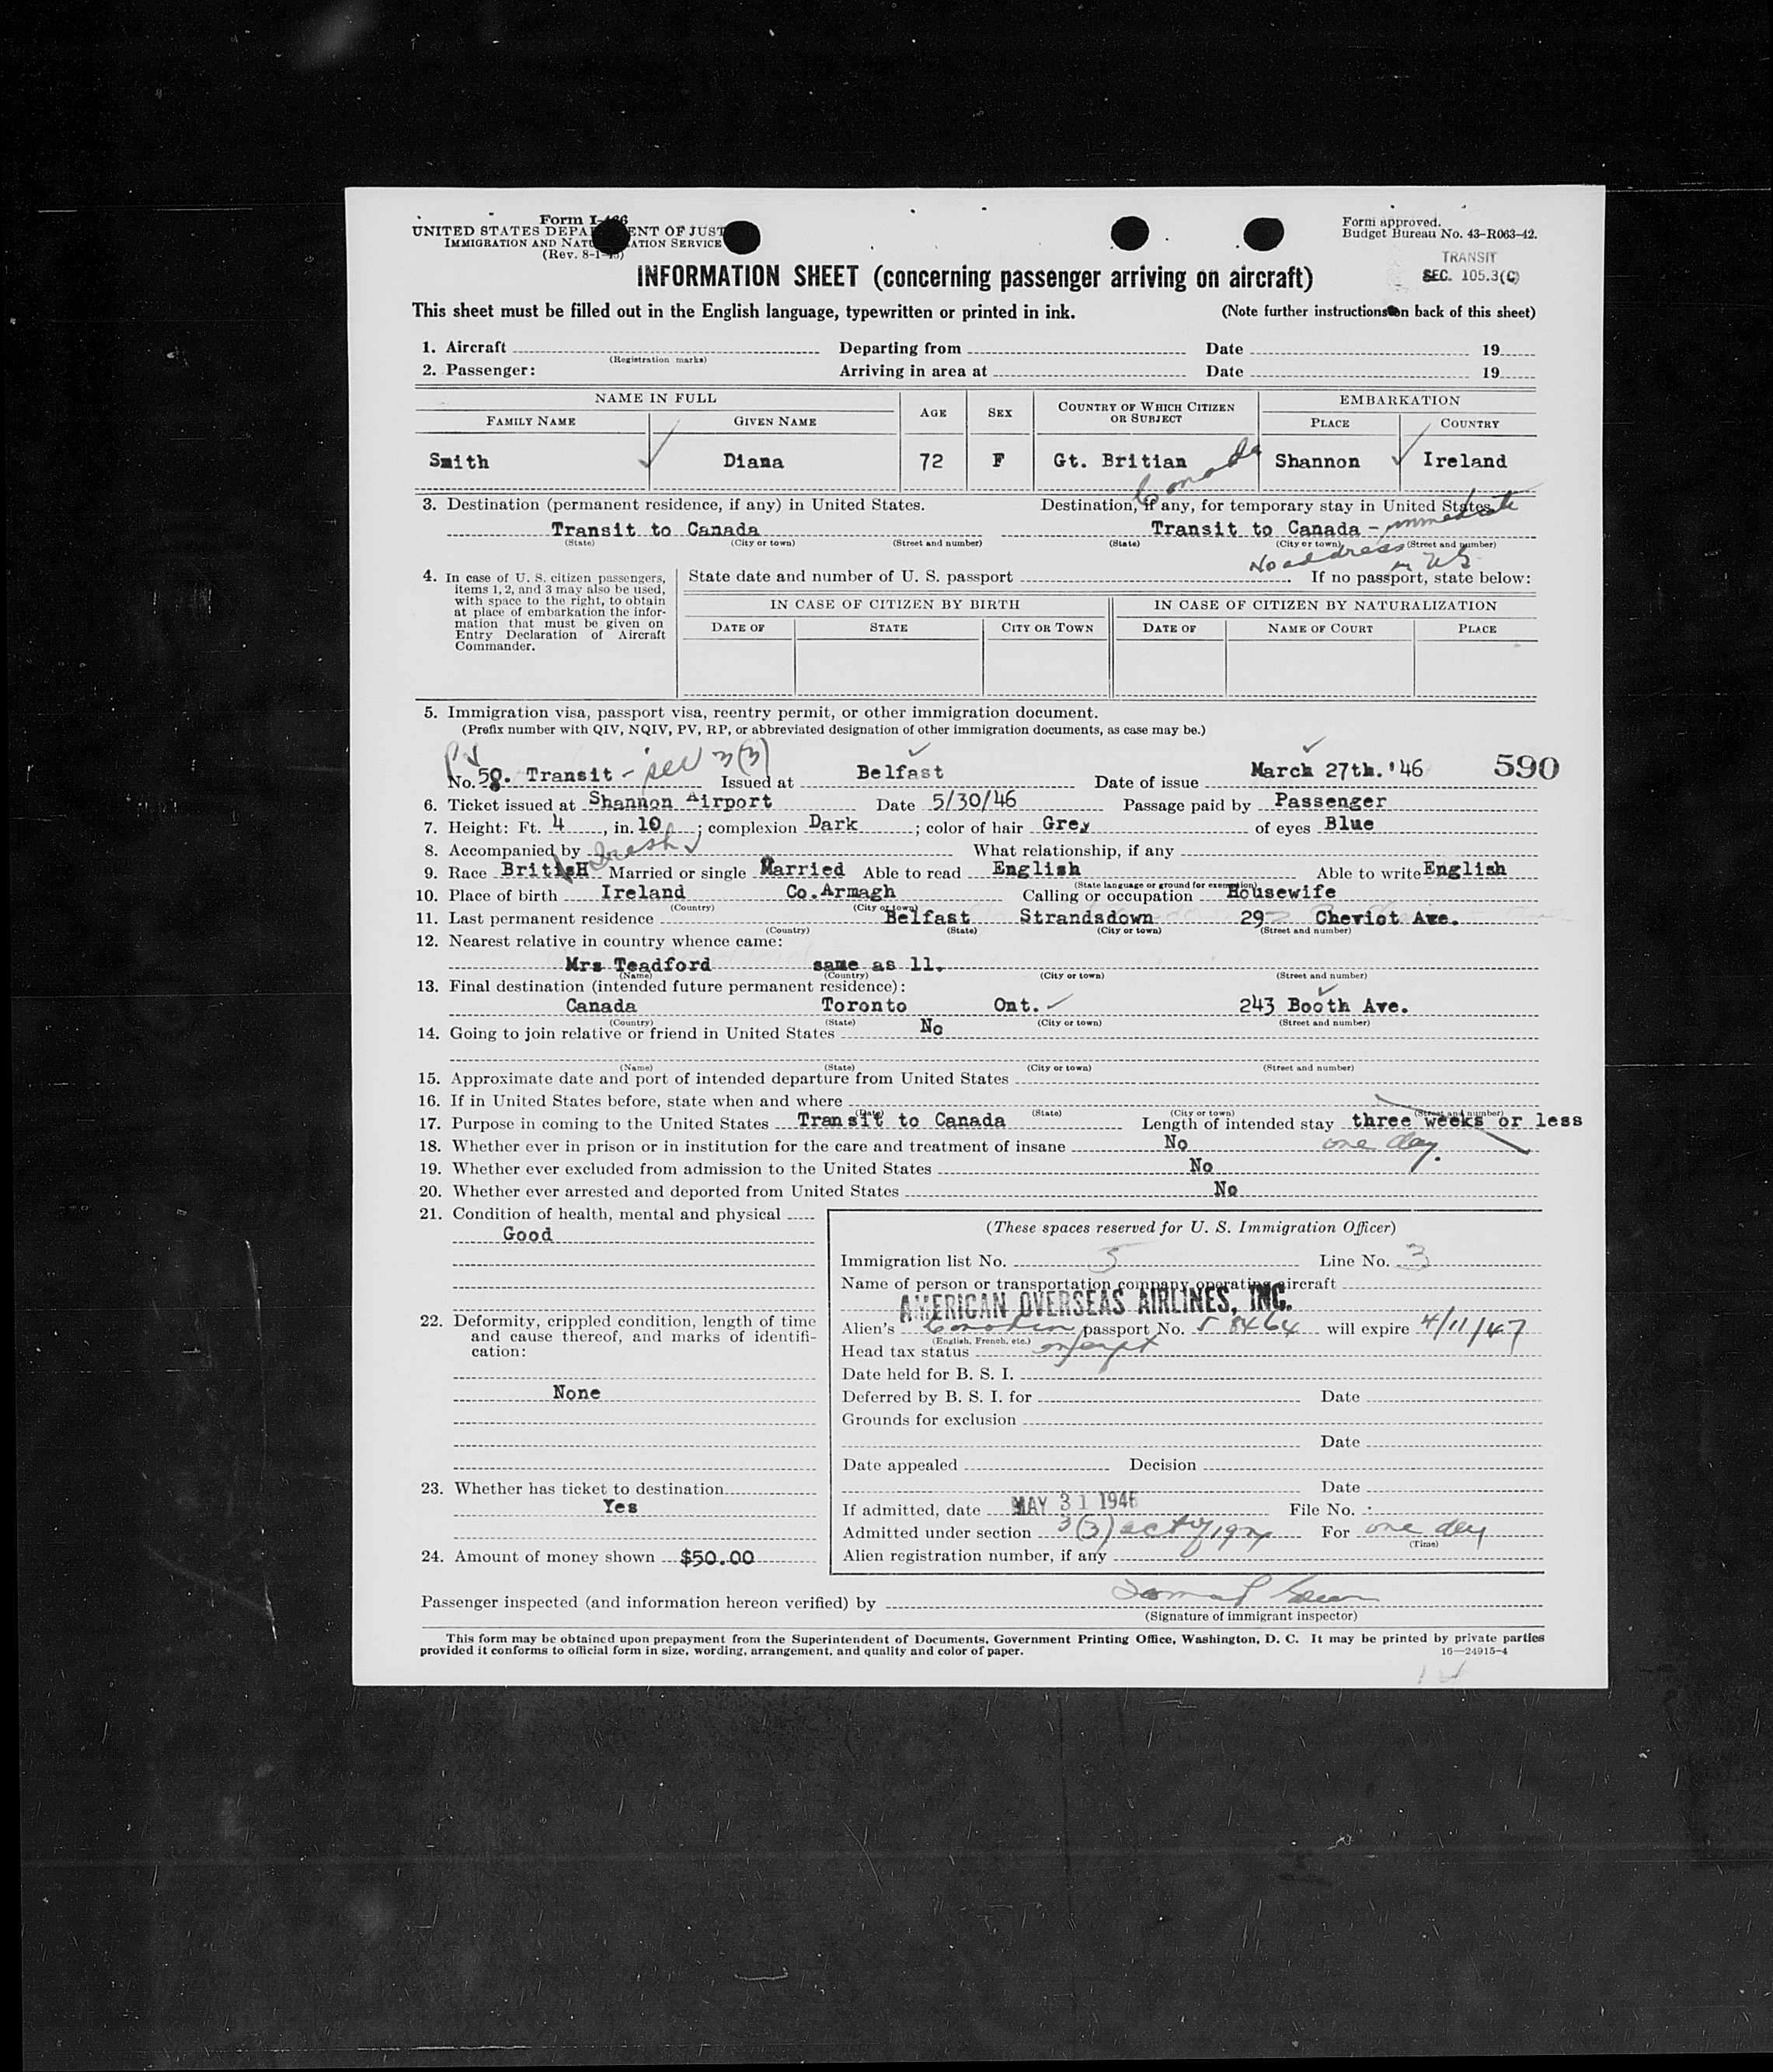 Form I-466
UNITED STATES DEPA ENT OF JUST
IMMIGRATION AND NATU ATION SERVICE
(Rev. 8-1-45)
Form approved.
Budget Bureau No. 43-R063-42.
TRANSIT
SEC. 105.3(C)
INFORMATION SHEET (concerning passenger arriving on aircraft)
This sheet must be filled out in the English language, typewritten or printed in ink. (Note further instructions on back of this sheet)
1. Aircraft Departing from Date 19
(Registration marks)
2. Passenger: Arriving in area at Date 19
NAME IN FULL AGE SEX COUNTRY OF WHICH CITIZEN OR SUBJECT EMBARKATION
FAMILY NAME GIVEN NAME PLACE COUNTRY
Smith Diana 72 F Gt. Britian Canada Shannon Ireland
3. Destination (permanent residence, if any) in United States. Destination, if any, for temporary stay in United States.
Transit to Canada Transit to Canada - immediate
(State) (City or town) (Street and number) (State) (City or town) (Street and number)
No address in US
4. In case of U. S. citizen passengers, items 1, 2, and 3 may also be used, with space to the right, to obtain at place of embarkation the information that must be given on Entry Declaration of Aircraft Commander.
State date and number of U. S. passport If no passport, state below:
IN CASE OF CITIZEN BY BIRTH IN CASE OF CITIZEN BY NATURALIZATION
DATE OF STATE CITY OR TOWN DATE OF NAME OF COURT PLACE
5. Immigration visa, passport visa, reentry permit, or other immigration document.
(Prefix number with QIV, NQIV, PV, RP, or abbreviated designation of other immigration documents, as case may be.)
PV
No. 58. Transit - sec 3(3) Issued at Belfast Date of issue March 27th. '46 590
6. Ticket issued at Shannon Airport Date 5/30/46 Passage paid by Passenger
7. Height: Ft. 4, in. 10; complexion Dark; color of hair Grey of eyes Blue
8. Accompanied by What relationship, if any
Irish
9. Race BritisH Married or single Married Able to read English Able to write English
(State language or ground for exemption)
10. Place of birth Ireland Co.Armagh Calling or occupation Housewife
(Country) (City or town)
11. Last permanent residence Belfast Strandsdown 29 Cheviot Ave.
(Country) (State) (City or town) (Street and number)
12. Nearest relative in country whence came:
Mrs Teadford same as 11.
(Name) (Country) (City or town) (Street and number)
13. Final destination (intended future permanent residence):
Canada Toronto Ont. 243 Booth Ave.
(Country) (State) (City or town) (Street and number)
14. Going to join relative or friend in United States No
(Name) (State) (City or town) (Street and number)
15. Approximate date and port of intended departure from United States
16. If in United States before, state when and where
(Date) (State) (City or town) (Street and number)
17. Purpose in coming to the United States Transit to Canada Length of intended stay three weeks or less
one day.
18. Whether ever in prison or in institution for the care and treatment of insane No
19. Whether ever excluded from admission to the United States No
20. Whether ever arrested and deported from United States No
21. Condition of health, mental and physical
Good
22. Deformity, crippled condition, length of time and cause thereof, and marks of identification:
None
23. Whether has ticket to destination
Yes
24. Amount of money shown $50.00
(These spaces reserved for U. S. Immigration Officer)
Immigration list No. 5 Line No. 3
Name of person or transportation company operating aircraft
AMERICAN OVERSEAS AIRLINES, INC.
Alien's Canadian passport No. 5 8464 will expire 4/11/47
(English, French, etc.)
Head tax status exempt
Date held for B. S. I.
Deferred by B. S. I. for Date
Grounds for exclusion
Date
Date appealed Decision
Date
If admitted, date MAY 31 1946 File No.
Admitted under section 3(3) act of 1924 For one day
(Time)
Alien registration number, if any
Passenger inspected (and information hereon verified) by
(Signature of immigrant inspector)
This form may be obtained upon prepayment from the Superintendent of Documents, Government Printing Office, Washington, D. C. It may be printed by private parties
provided it conforms to official form in size, wording, arrangement, and quality and color of paper. 16—24915-4